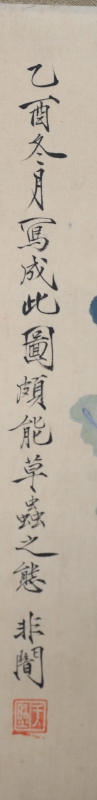 乙酉冬月寫成此圖頗能草蟲之態非闇